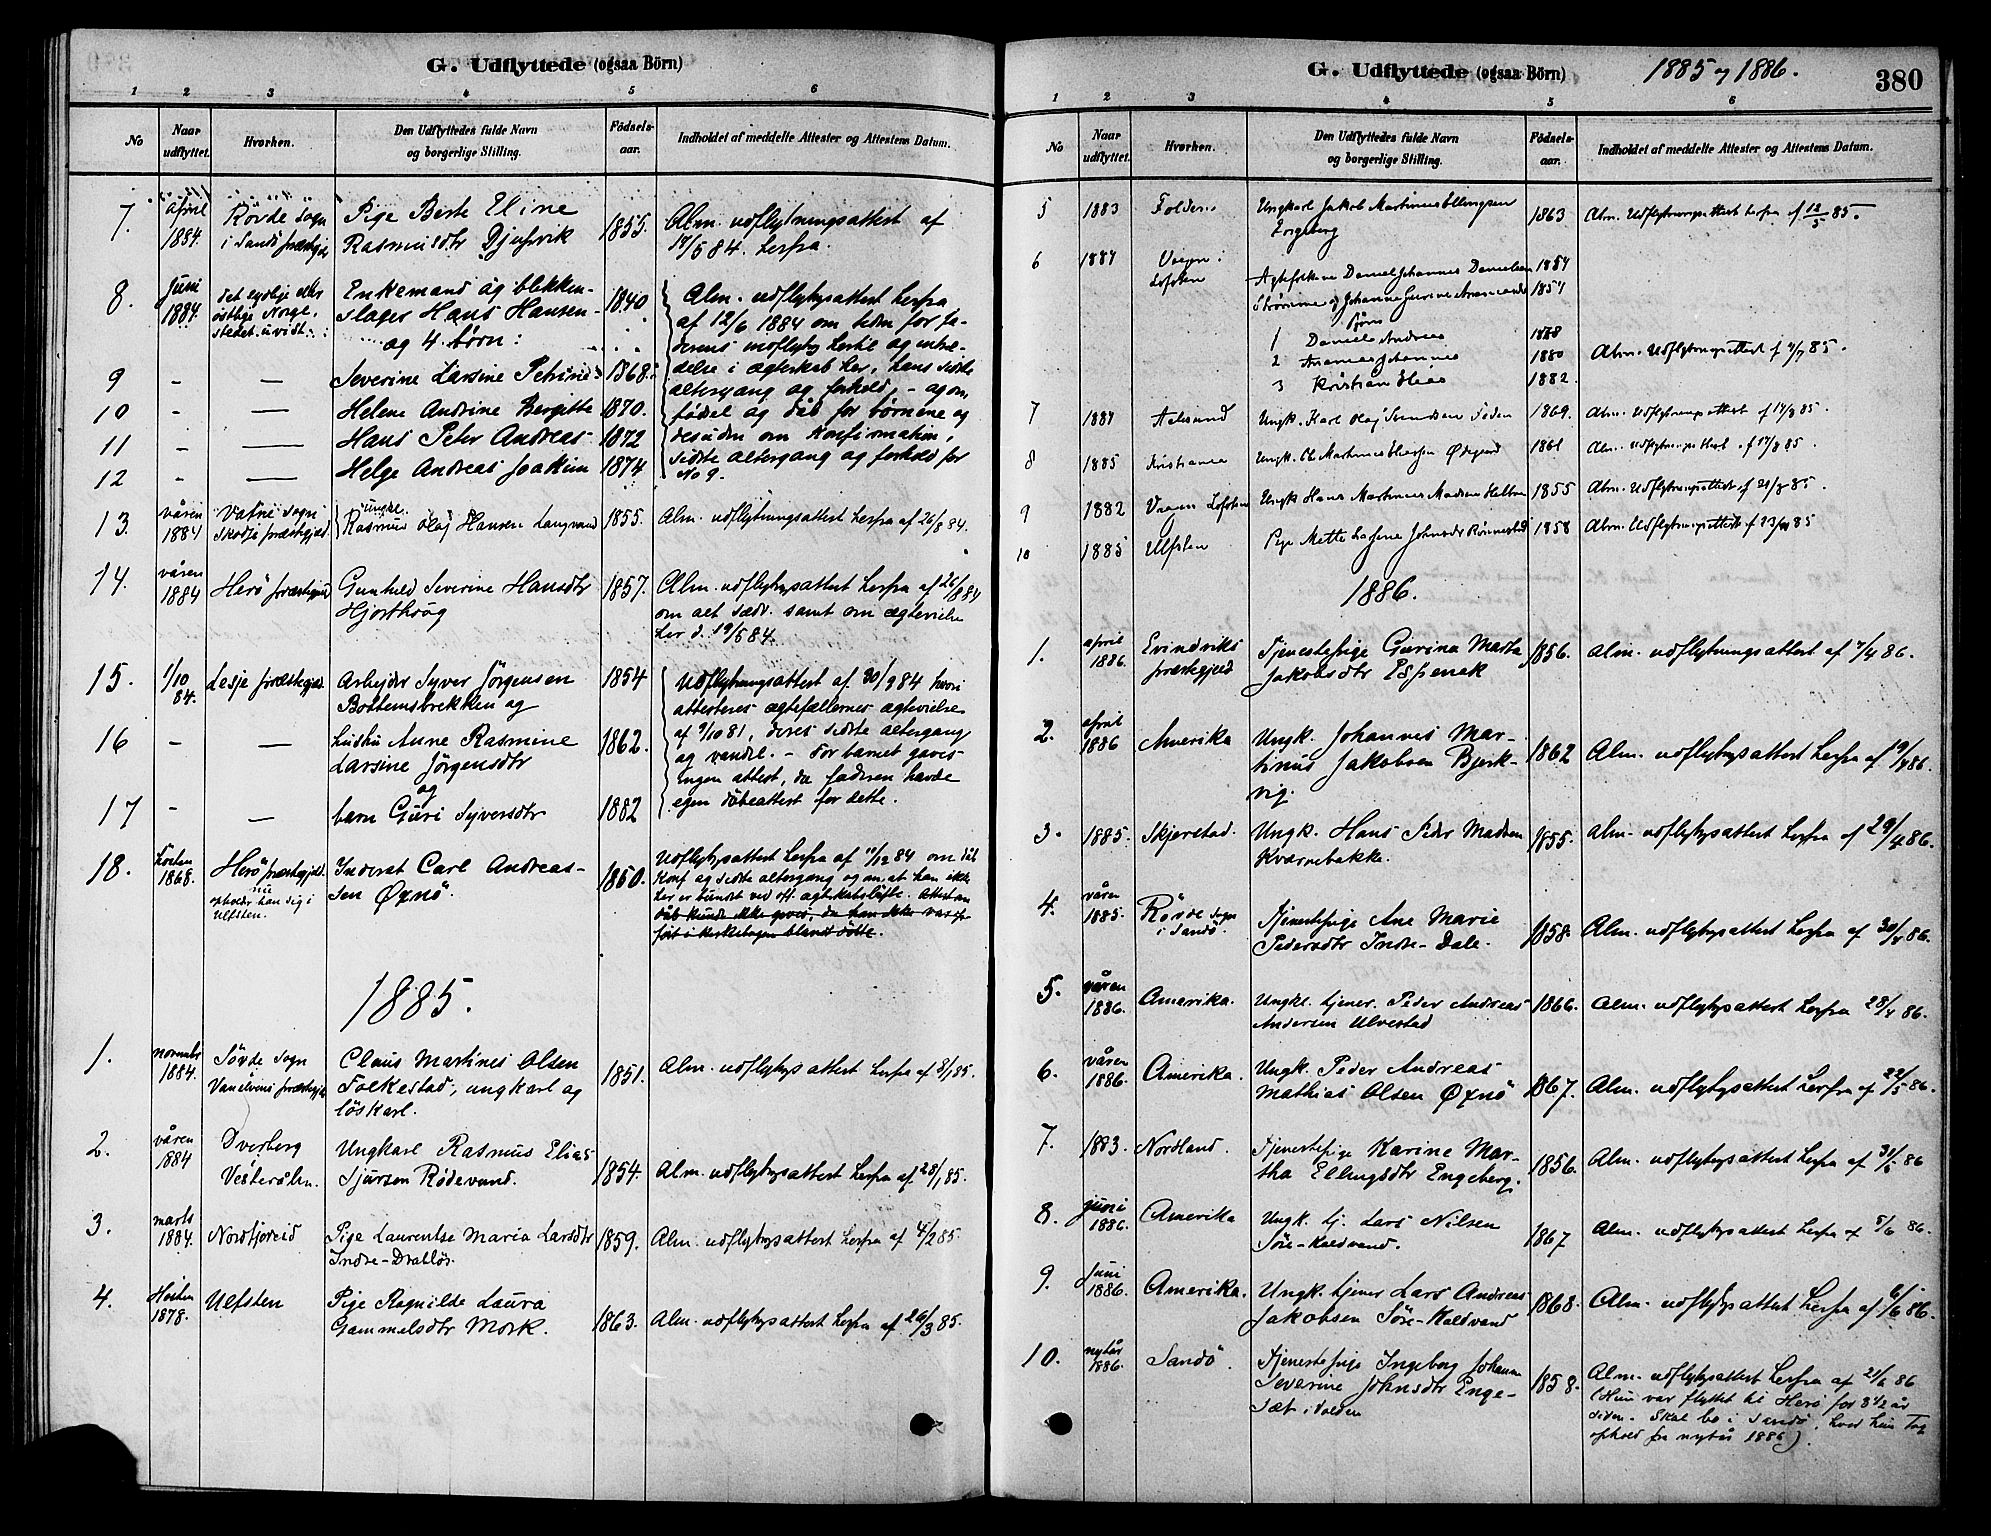 G. Udflyttede (ogsaa Börn)
1 2 3 4 5 6
No
Naar udflyttet.
Hvorhen.
Den Udflyttedes fulde Navn og borgerlige Stilling.
Födsels-aar.
Indholdet af meddelte Attester og Attestens Datum.
7. april 1884. Rövde sogn Pige Berte Eline 1855. Alm. udflytningsattest af
i Sandö præstegjeld Rasmusdtr Djupvik 17/5 84. herfra.
8. Juni 1884. det sydlige eller Enkemand og blikken- 1840 Alm. udflytgsattest herfra
östlige Norge, slager Hans Hansen af 12/6 1884 om tiden for fa-
stedet uvist. og 4 börn: derens indflytg hertil og indtræ-
9 - — Severine Larsine Petrine 1868. delse i ægteskab her, hans sidste
altergang og forhold, - og om
10 - — Helene Andrine Bergitte 1870. födsel og dåb for börnene og
11 - — Hans Peter Andreas 1872 desuden om Konfirmation,
12 - — Helge Andreas Joakim 1874 sidste altergang og forhold for
No 9.
13. våren 1884 Vatne sogn ungk.
Skodje præstegjeld. Rasmus Olaj Hansen Langvand 1855. Alm. udflytningsattest herfra af 26/8 84.
14. våren 1884 Herö præstegjeld Gunhild Severine Hansdtr 1857. Alm. udflytgsattest herfra af 26/8 84
Hjorthoug om alt sædv. samt om ægtevielse
her d. 19/5 84.
15. 1/10 84. Lesje præstegjeld. Arbejder Syver Jörgensen 1854 Udflytningsattest af 30/9 84 hvori
Bottemsbrekken og attesteres ægtefællernes ægtevielse
16 - — hustru Anne Rasmine 1862. af 9/10 81, deres sidste altergang
Larsine Jörgensdtr og vandel. - For barnet gaves
og ingen attest, da faderen havde
17 - — barn Guri Syversdtr 1882 egen dåbsattest for dette.
18. hösten 1868. Herö præstegjeld. Inderst Carl Andreas- 1850. Udflytgsattest herfra af 11/12 84 om dåb
nu sen Øxnö. Konf og sidste altergang og om, at han ikke
opholder han sig i her er bundet ved off. ægteskabslöfte. Attest om
Ulfsten. dåb kunde ikke gives, da han ikke var op-
fört i kirkebogen blandt döbte.
1885.
1. novembr 1884. Sövde sogn Claus Martines Olsen 1851. Alm. udflytgsattest herfra af 8/1 85.
Vanelvens præstegjeld Folkestad, ungkarl og
löskarl.
2. våren 1884 Dverberg Ungkarl Rasmus Elias 1854. Alm. udflytgsattest herfra af 28/1 85.
Vesterålen. Sjursen Rödevand.
3. marts 1884. Nordfjoreid Pige Laurentse Maria Larsdtr 1859. Alm. udflytgsattest herfra af 4/2 85.
Indre-Drablös.
4. Hösten 1878. Ulfsten Pige Ragnilde Laura 1863. Alm. udflytgsattest herfra af 26/3 85.
Gammelsdtr Mork.
G. Udflyttede (ogsaa Börn) 1885 og 1886. 380
1 2 3 4 5 6
No
Naar udflyttet.
Hvorhen.
Den Udflyttedes fulde Navn og borgerlige Stilling.
Födsels-aar.
Indholdet af meddelte Attester og Attestens Datum.
5 1883 Folden Ungkarl Jakob Martinus Ellingsen 1863 Alm. Udflytningsattest herfra af 12/5 85.
6 1884 Vaagen i Ægtefolkene Daniel Johannes Danielsen 1854
Lofoten Strömme og Johanne 1854
Börn
1 Daniel Andreas 1878
2 Johannes 1880 Alm. Udflytningsattest af 4/7 85.
3 Kristian Elias 1882.
7 1884 Aalesund Ungk. Karl Olaj 1869. Alm. Udflytningsattest af 14/8 85.
8 1885 Kristiania Ungk. Martinus Ødegaard 1861 Alm. Udflytningsattest af 17/8 85.
9 1882 Vaagen Lofoten Ungk Hans Martinus Madsen 1855 Alm. Udflytningsattest af 21/8 85.
10 1885 Ulfsten Pige Mette Johnsdr Rönnestad 1858 Alm. Udflytningsattest af 23/11 85
1886.
1. april 1886. Evindviks Tjenestepige Gurina Marta 1856. Alm. udflytningsattest af 7/4 86.
præstegjeld Jakobsdtr Espenak
2. april 1886 Amerika Ungk. Johannes Mar- 1862 Alm. udflytgsattest herfra af 19/4 86.
tinus Jakobsen Bjerk-
vig.
3. 1885. Skjerstad. Ungk. Hans Peder Madsen 1855. Alm. udflytgsattest herfra af 29/4 86.
Kvarnebakke.
4. våren 1885. Rövde sogn Tjenestepige Ane Marie 1858. Alm. udflytgsattest herfra af 30/4 86.
i Sandö. Pedersdtr Indre-Dale.
5. våren 1886. Amerika. Ungkl. tjener. Peder Andreas 1866. Alm. udflytgsattest herfra 28/4 86.
Andersen Ulvestad
6. våren 1886. Amerika. Ungk. Peder Andreas 1867. Alm. udflytgsattest herfra af 22/5 86.
Mathias Olsen Øxnö
7. 1883. Nordland. Tjenestepige Karine Mar- 1856. Alm. udflytgsattest herfra af 31/5 86
tha Ellingsdtr Engeberg.
8. juni 1886. Amerika Ungk. tj. Lars Nilsen 1867 Alm. udflytgsattest herfra af 5/6 86.
Söre-Kaldvand.
9. Juni 1886. Amerika. Ungk. tjener Lars Andreas 1868. Alm. udflytgsattest herfra af 6/6 86.
Jakobsen Söre-Kaldvand
10. nytår 1886. Sandö. Tjenestepige Ingeborg Johanne 1858. Alm. udflytgsattest herfra af 21/6 86
Severine Johnsdtr Enge- (Hun var flyttet til Herö for 3 1/2 år
sæt i Volden siden. Skal bo i Sandö, hvor hun tog
ophold fra nytår 1886).